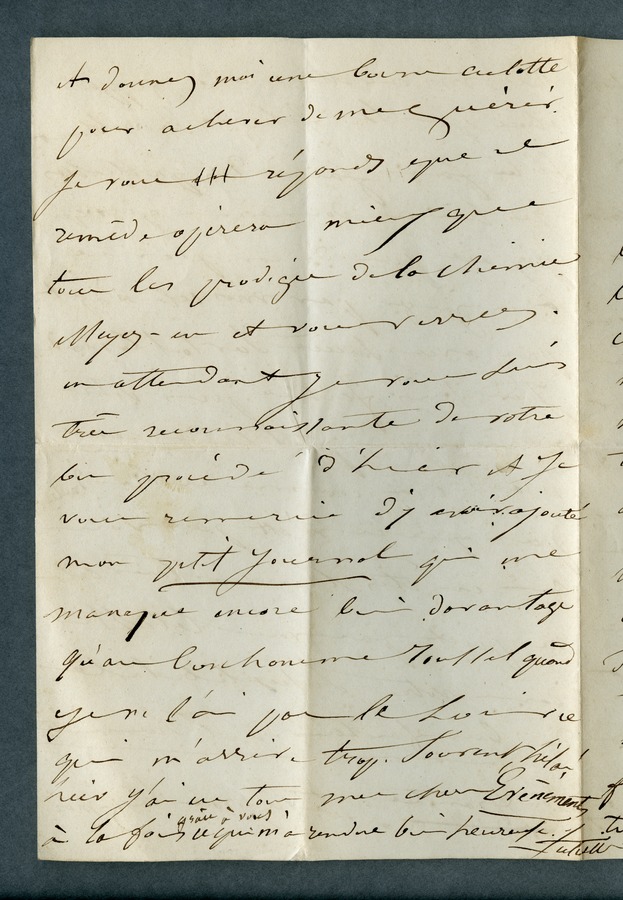 et donnez moi une bonne culotte
pour achever de me guérir.
Je vous réponds que ce
remède opérera mieux que
tous les prodiges de la chimie
Essayez-en et vous verrez.
en attendant je vous suis
très reconnaissante de votre
bon procédé d'hier et je
vous remercie d'y avoir ajouté
mon petit Journal qui me
manque encore bien davantage
qu'au bonhomme quand
je ne l'ai pas le soir ce
qui m'arrive trop souvent hélas!
hier j'ai eu tous mes chers Evènements
à la fois grâce à vous ce qui m'a rendue bien heureuse.
Juliette